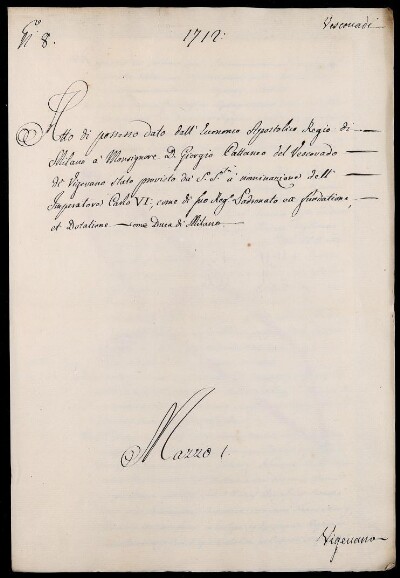 N.ro 8. 1712. Vescovadi
Atto di possesso dato dall' Economo Apostolico Regio di
Milano a Monsignore D. Giorgio Cattaneo del Vescovado
di Vigevano stato provisto da S. S.tà a nominazione dell'
Imperatore Carlo VI:, come di suo Reg.o Padronato ex fundatione,
et Dotatione come Duca di Milano
Mazzo 1.
Vigevano